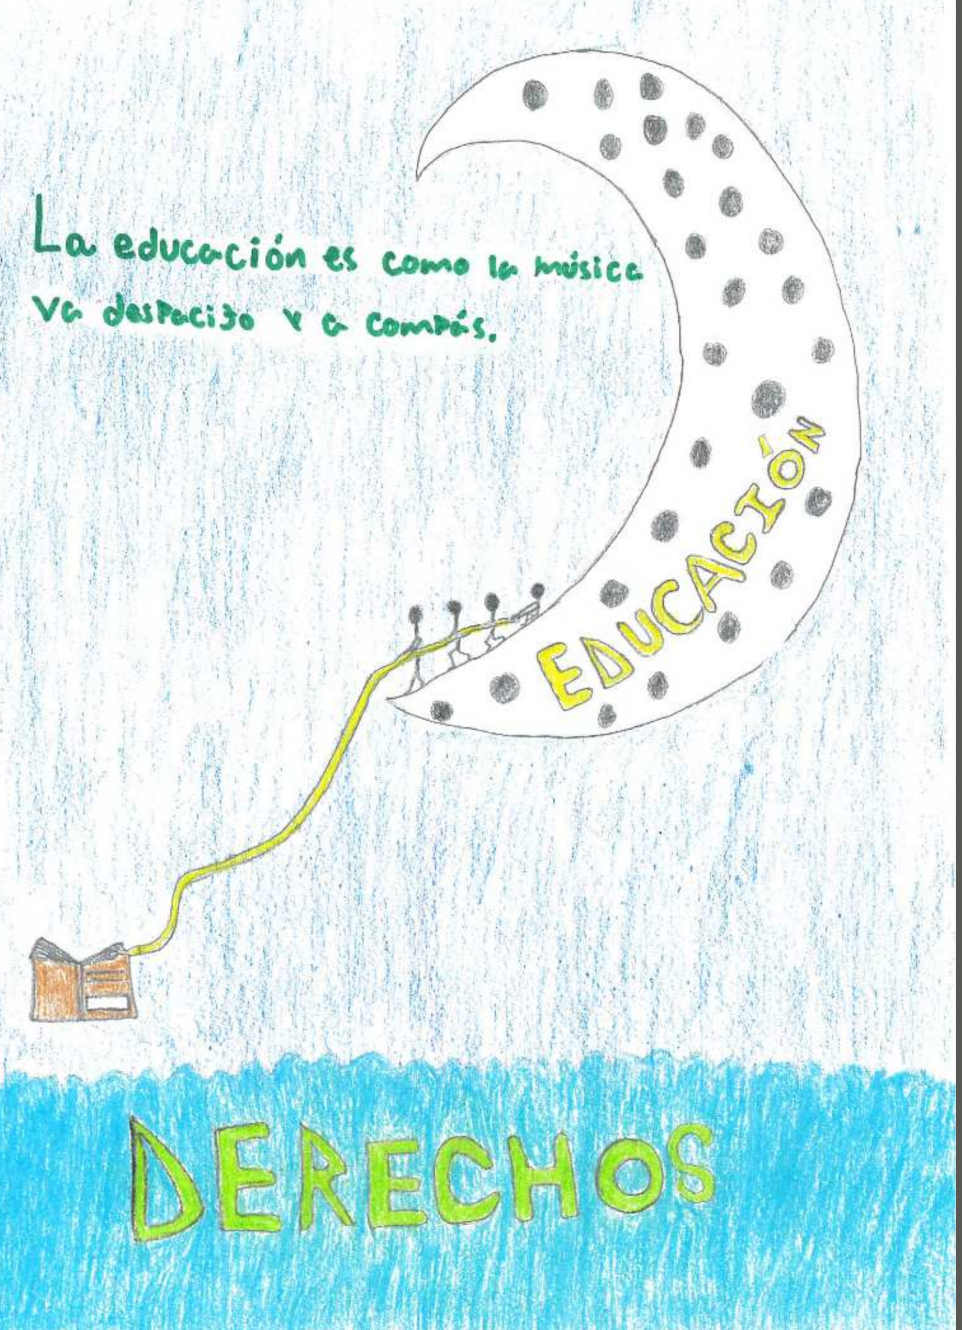 La educación es como la música
va despacito y a compás.
EDUCACIÓN
DERECHOS